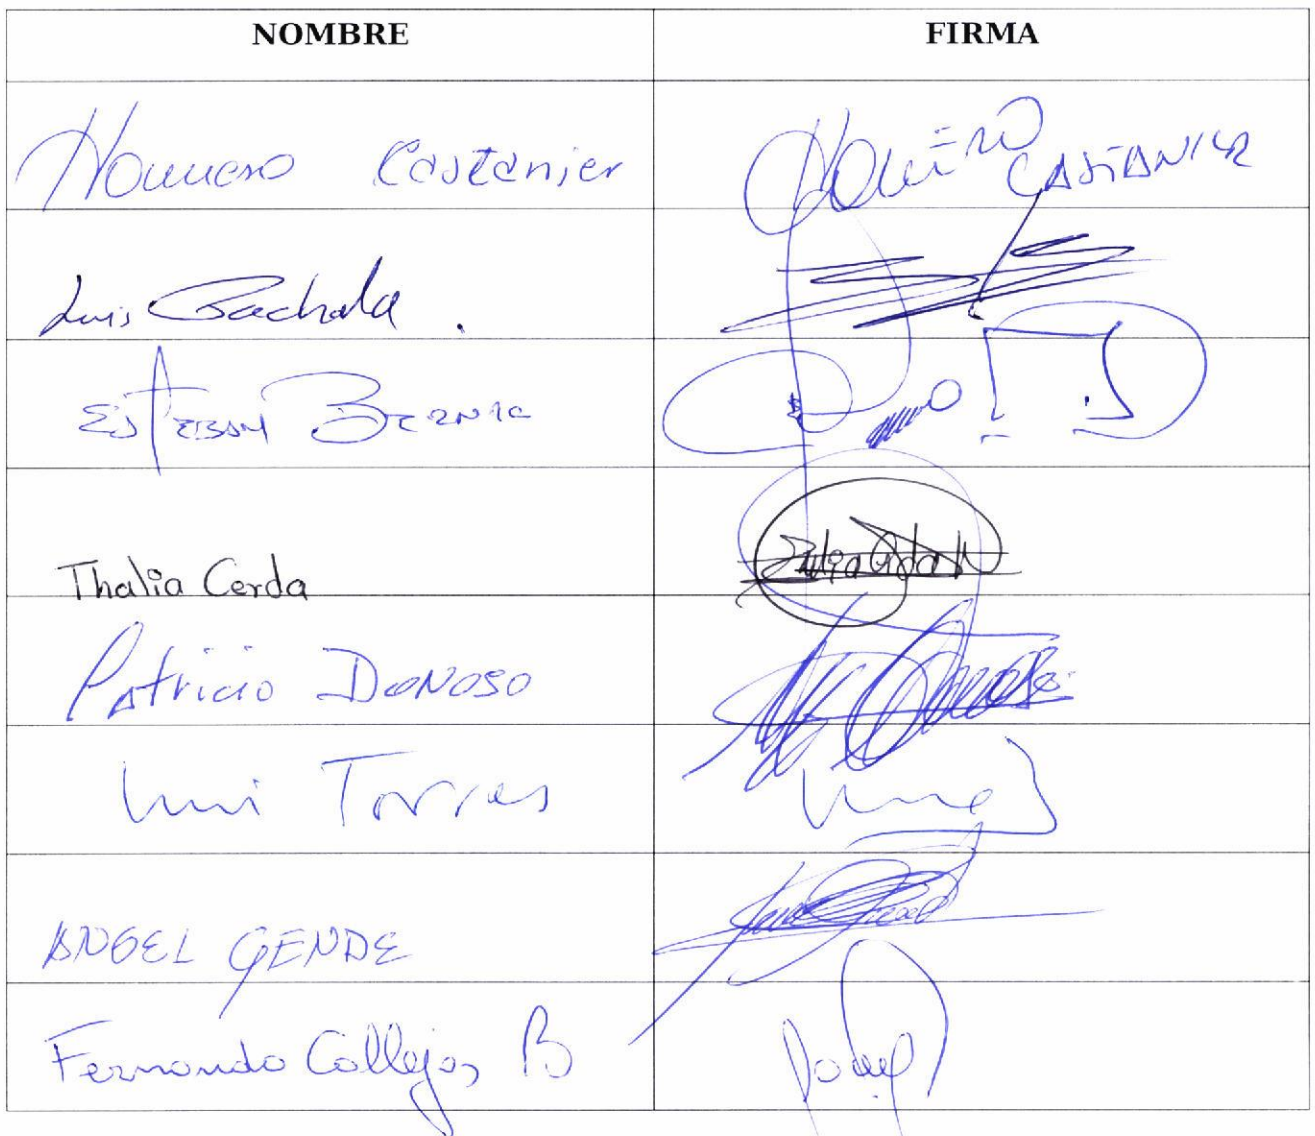 NOMBRE FIRMA
Homero Castanier HOMERO CASTANIER
Luis Pachala.
ESTEBAN BERNAL
Thalia Cerda
Patricio DONOSO
Luis Torres
ANGEL GENDE
Fernando Callejas B